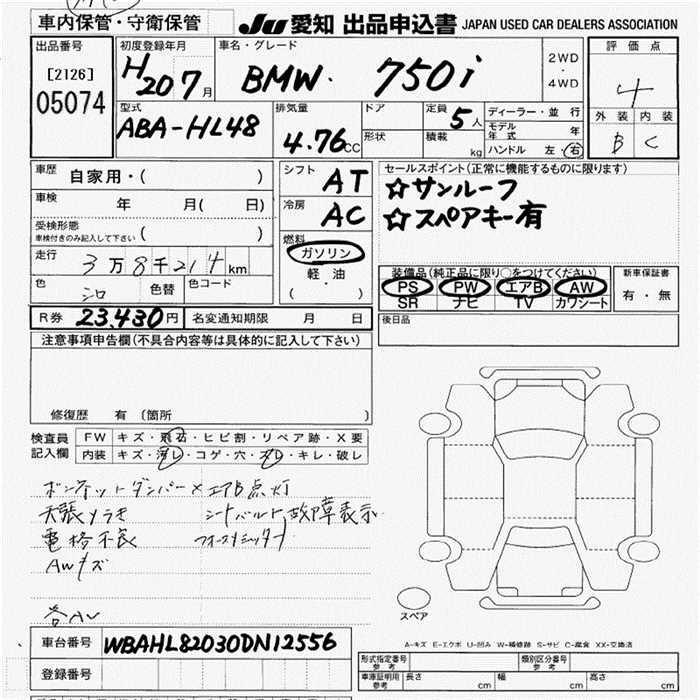 車内保管・守衛保管
JU 愛知 出品申込書 JAPAN USED CAR DEALERS ASSOCIATION
出品番号 初度登録年月 車名・グレード 2WD ・ 4WD 評価点
[2126] H20 7月 BMW. 750i 4
05074
型式 排気量 ドア 定員 ディーラー・並行 外装 内装
ABA-HL48 4.76CC 形状 5人 モデル年式 年 B C
積載 kg ハンドル 左・右
車歴 自家用・( ) シフト AT セールスポイント(正常に機能するものに限ります)
車検 年 月( 日) 冷房 AC ☆サンルーフ
受検形態 ( ) ☆スペアキー有
車検付きのみ記入して下さい
燃料 ガソリン
走行 3万8千214km 軽油
( ・ )
装備品(純正品に限り○をつけてください) 新車保証書
色 シロ 色替 色コード PS PW エアB AW 有・無
SR ナビ TV カワシート
R券 23,430円 名変通知期限 月 日 後日品
注意事項申告欄(不具合内容等は具体的に記入して下さい)
修復歴 有(箇所 )
検査員 FW キズ・飛石・ヒビ割・リペア跡・X要
記入欄 内装 キズ・汚レ・コゲ・穴・スレ・キレ・破レ
ボンネットダンパー× エアB点灯
天張リラモ シートベルト故障表示
電格不良
AWキズ
スペア
A-キズ E-エクボ U-凹み W-補修跡 S-サビ C-腐食 XX-交換済
車台番号 WBAHL82030DN12556
登録番号
形式指定番号 参考 類別区分番号 参考
車庫証明用 参考 長さ cm 幅 cm 高さ cm